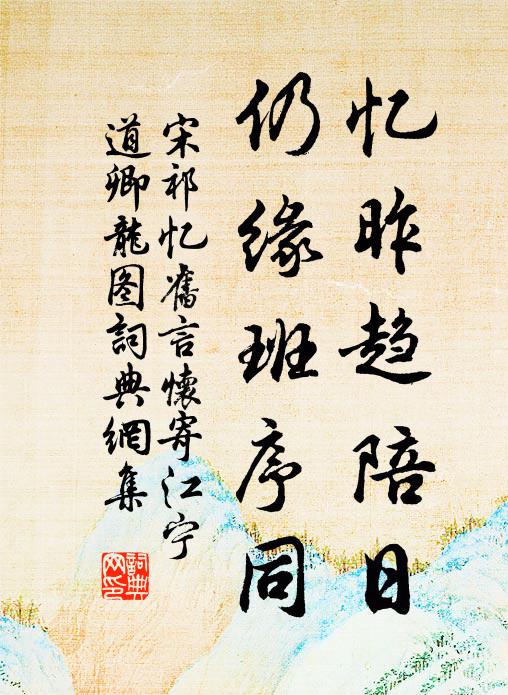 忆昨趋陪日
仍缘班序同
宋祁忆旧言懷寄江宁
道卿龍图詞典網集
詞典网印